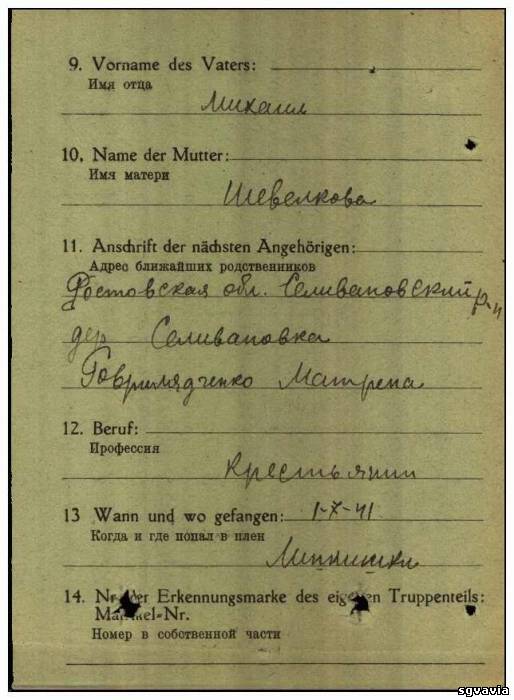 9. Vorname des Vaters:
Имя отца
Михаил
10. Name der Mutter:
Имя матери
Шевелкова
11. Anschrift der nächsten Angehörigen:
Адрес ближайших родственников
Ростовская обл. Селивановский р-н
дер Селивановка
Матрена
12. Beruf:
Профессия
Крестьянин
13 Wann und wo gefangen: 1-7-41
Когда и где попал в плен
14. Erkennungsmarke des Truppenteils:
Номер в собственной части
sgvavia